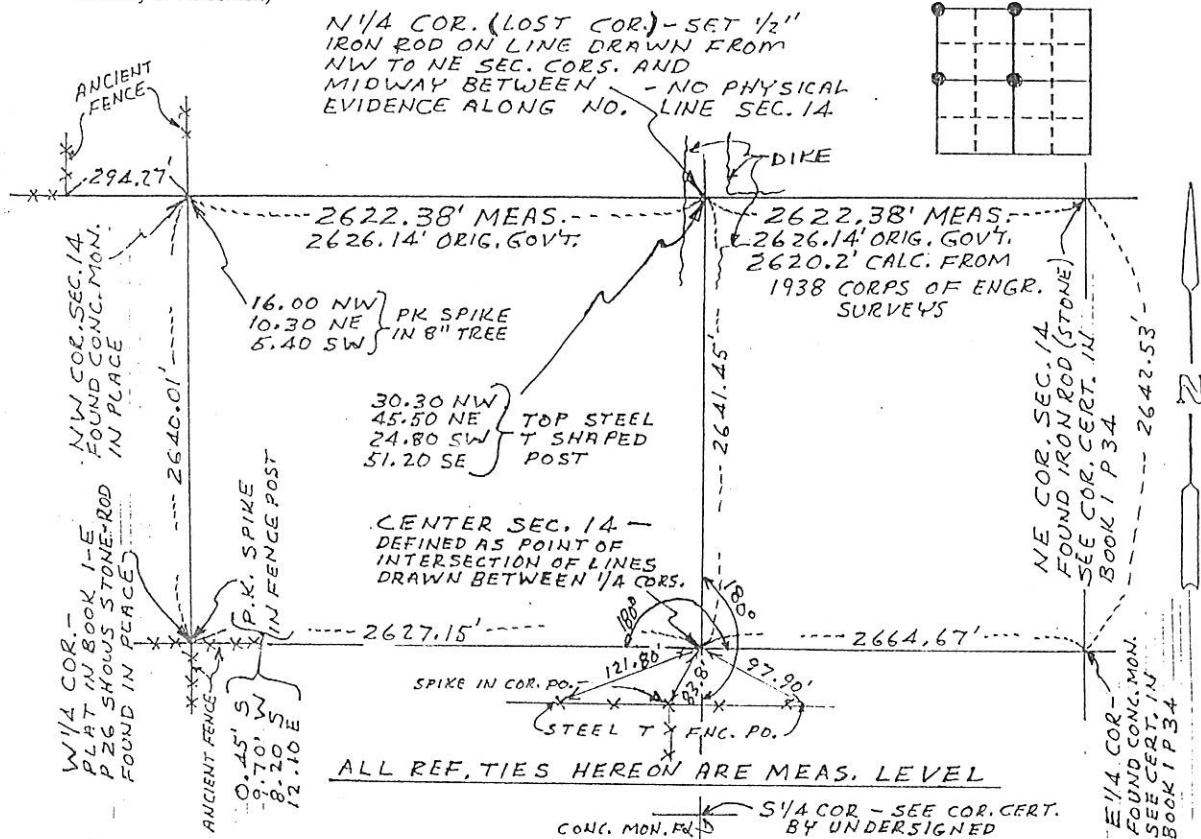 N 1/4 COR. (LOST COR.) - SET 1/2"
IRON ROD ON LINE DRAWN FROM
NW TO NE SEC. CORS. AND
MIDWAY BETWEEN - NO PHYSICAL
EVIDENCE ALONG NO. LINE SEC. 14
ANCIENT
FENCE
DIKE
294.27'
2622.38' MEAS.
2626.14' ORIG. GOV'T.
2622.38' MEAS.
2626.14' ORIG. GOV'T.
2620.2' CALC. FROM
1938 CORPS OF ENGR.
SURVEYS
NW COR. SEC. 14
FOUND CONC. MON.
IN PLACE
16.00 NW
10.30 NE
5.40 SW
PK SPIKE
IN 8" TREE
2640.01'
30.30 NW
45.50 NE
24.80 SW
51.20 SE
TOP STEEL
T SHAPED
POST
2641.45'
NE COR. SEC. 14
FOUND IRON ROD (STONE)
SEE COR. CERT. IN
BOOK 1 P 34
2642.53'
N
CENTER SEC. 14 -
DEFINED AS POINT OF
INTERSECTION OF LINES
DRAWN BETWEEN 1/4 CORS.
180°
180°
W 1/4 COR. -
PLAT IN BOOK 1-E
P 26 SHOWS STONE-ROD
FOUND IN PLACE
P.K. SPIKE
IN FENCE POST
0.45' S
9.70' W
8.20 S
12.10 E
ANCIENT FENCE
2627.15'
2664.67'
121.80'
83.8'
97.90'
SPIKE IN COR. PO.
STEEL T FNC. PO.
E 1/4 COR -
FOUND CONC. MON.
SEE CERT. IN
BOOK 1 P 34
ALL REF. TIES HEREON ARE MEAS. LEVEL
CONC. MON. FD.
S 1/4 COR - SEE COR. CERT.
BY UNDERSIGNED